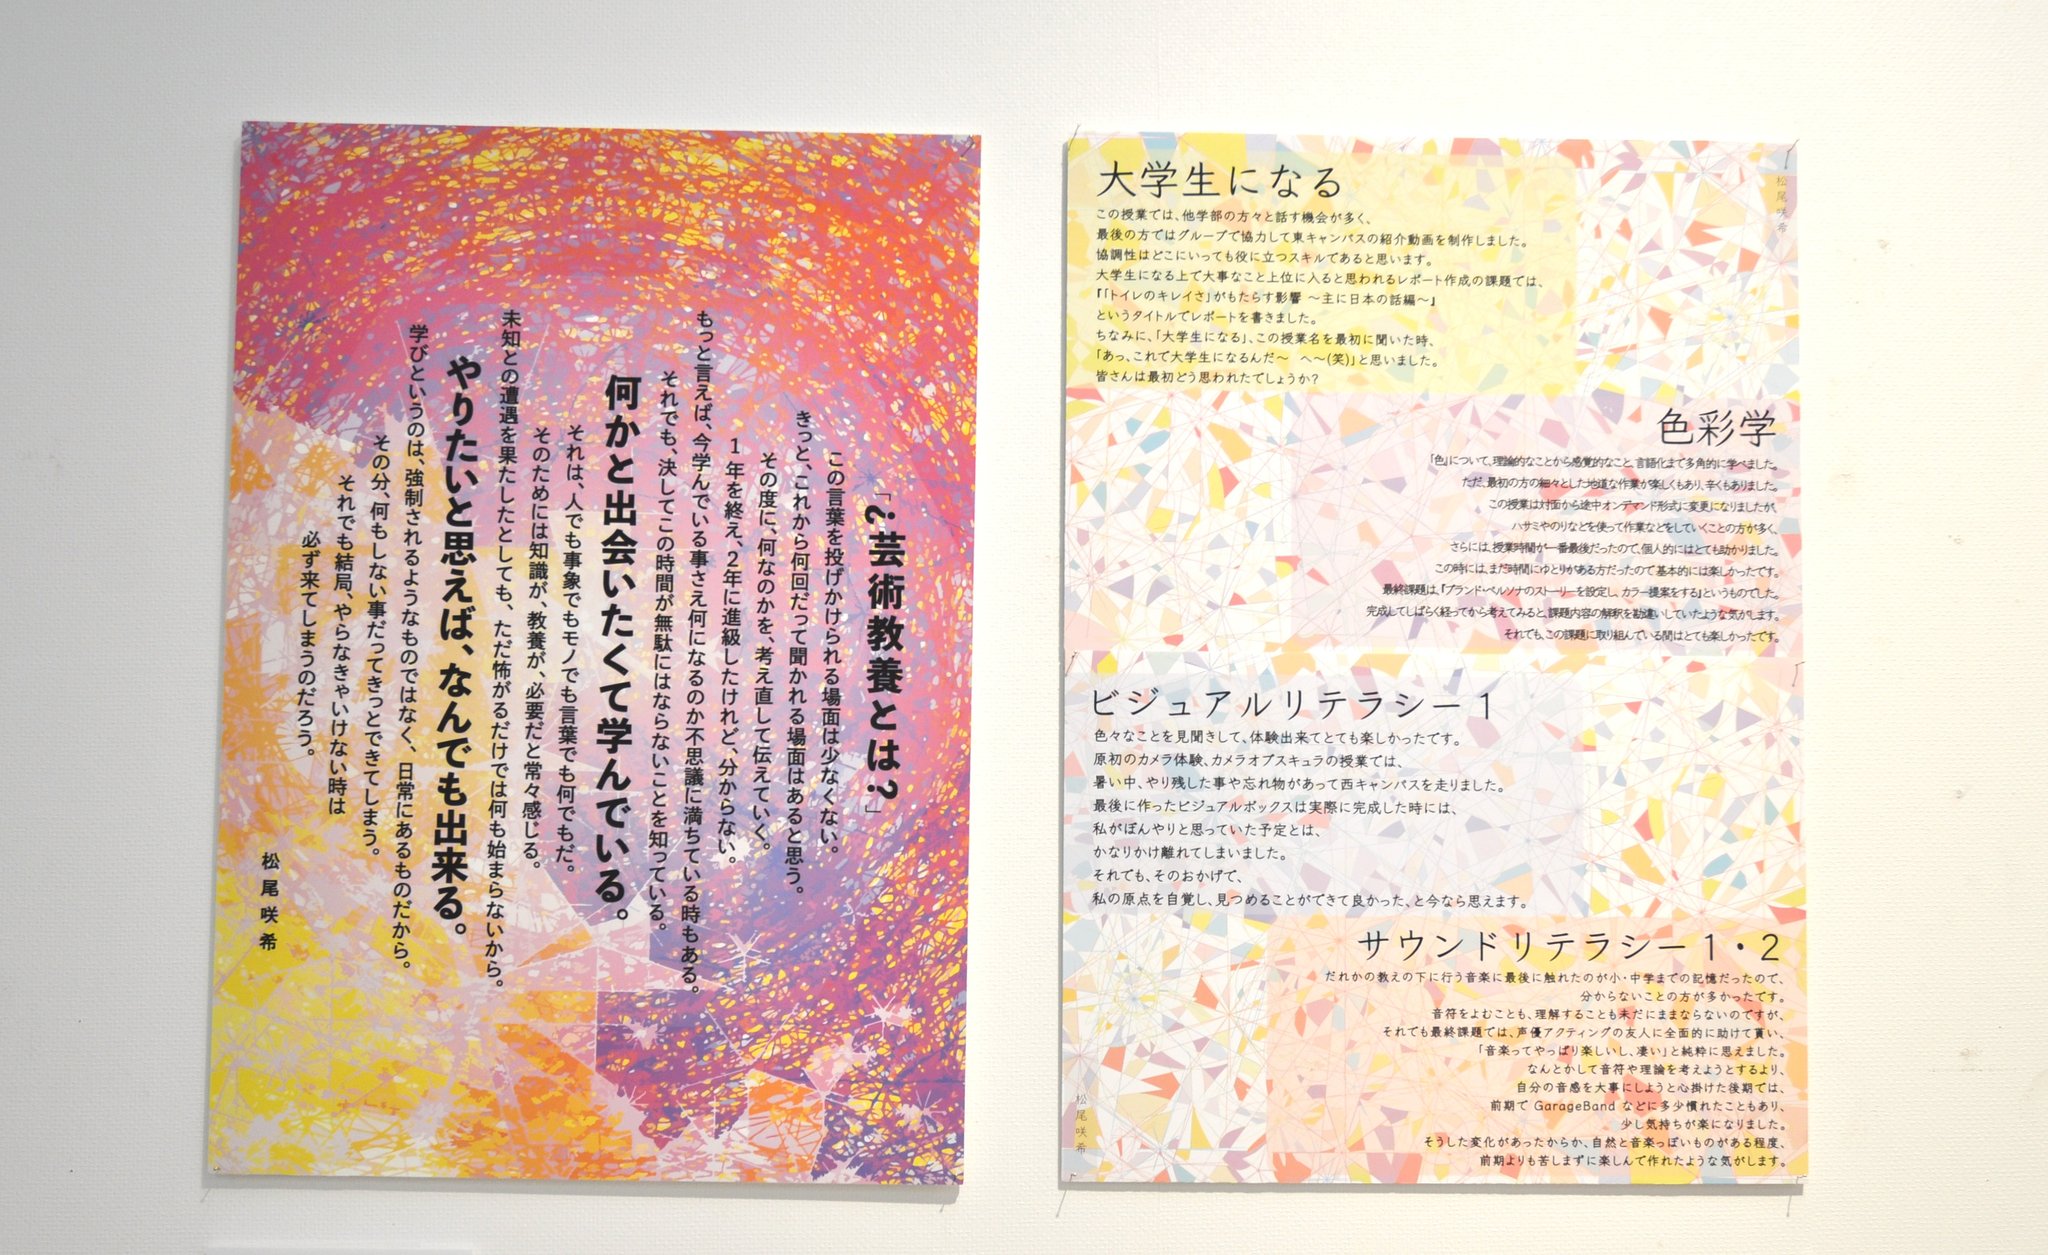 「？芸術教養とは？」
この言葉を投げかけられる場面は少なくない。
きっと、これから何回だって聞かれる場面はあると思う。
その度に、何なのかを、考え直して伝えていく。
1年を終え、2年に進級したけれど、分からない。
もっと言えば、今学んでいる事さえ何になるのか不思議に満ちている時もある。
それでも、決してこの時間が無駄にはならないことを知っている。
何かと出会いたくて学んでいる。
それは、人でも事象でもモノでも言葉でも何でもだ。
そのためには知識が、教養が、必要だと常々感じる。
未知との遭遇を果たしたとしても、ただ怖がるだけでは何も始まらないから。
やりたいと思えば、なんでも出来る。
学びというのは、強制されるようなものではなく、日常にあるものだから。
その分、何もしない事だってきっとできてしまう。
それでも結局、やらなきゃいけない時は
必ず来てしまうのだろう。
松尾咲希
大学生になる
この授業では、他学部の方々と話す機会が多く、
最後の方ではグループで協力して東キャンパスの紹介動画を制作しました。
協調性はどこにいっても役に立つスキルであると思います。
大学生になる上で大事なこと上位に入ると思われるレポート作成の課題では、
『「トイレのキレイさ」がもたらす影響 〜主に日本の話編〜』
というタイトルでレポートを書きました。
ちなみに、「大学生になる」、この授業名を最初に聞いた時、
「あっ、これで大学生になるんだ〜 へ〜(笑)」と思いました。
皆さんは最初どう思われたでしょうか？
松尾咲希
色彩学
「色」について、理論的なことから感覚的なこと、言語化まで多角的に学べました。
ただ、最初の方の細々とした地道な作業が楽しくもあり、辛くもありました。
この授業は対面から途中オンデマンド形式に変更になりましたが、
ハサミやのりなどを使って作業などをしていくことの方が多く、
さらには、授業時間が一番最後だったので、個人的にはとても助かりました。
この時には、まだ時間にゆとりがある方だったので基本的には楽しかったです。
最終課題は、『ブランド・ペルソナのストーリーを設定し、カラー提案をする』というものでした。
完成してしばらく経ってから考えてみると、課題内容の解釈を勘違いしていたような気がします。
それでも、この課題に取り組んでいる間はとても楽しかったです。
ビジュアルリテラシー1
色々なことを見聞きして、体験出来てとても楽しかったです。
原初のカメラ体験、カメラオブスキュラの授業では、
暑い中、やり残した事や忘れ物があって西キャンパスを走りました。
最後に作ったビジュアルボックスは実際に完成した時には、
私がぼんやりと思っていた予定とは、
かなりかけ離れてしまいました。
それでも、そのおかげで、
私の原点を自覚し、見つめることができて良かった、と今なら思えます。
サウンドリテラシー1・2
だれかの教えの下に行う音楽に最後に触れたのが小・中学までの記憶だったので、
分からないことの方が多かったです。
音符をよむことも、理解することも未だにままならないのですが、
それでも最終課題では、声優アクティングの友人に全面的に助けて貰い、
「音楽ってやっぱり楽しいし、凄い」と純粋に思えました。
なんとかして音符や理論を考えようとするより、
自分の音感を大事にしようと心掛けた後期では、
前期で GarageBand などに多少慣れたこともあり、
少し気持ちが楽になりました。
そうした変化があったからか、自然と音楽っぽいものがある程度、
前期よりも苦しまずに楽しんで作れたような気がします。
松尾咲希